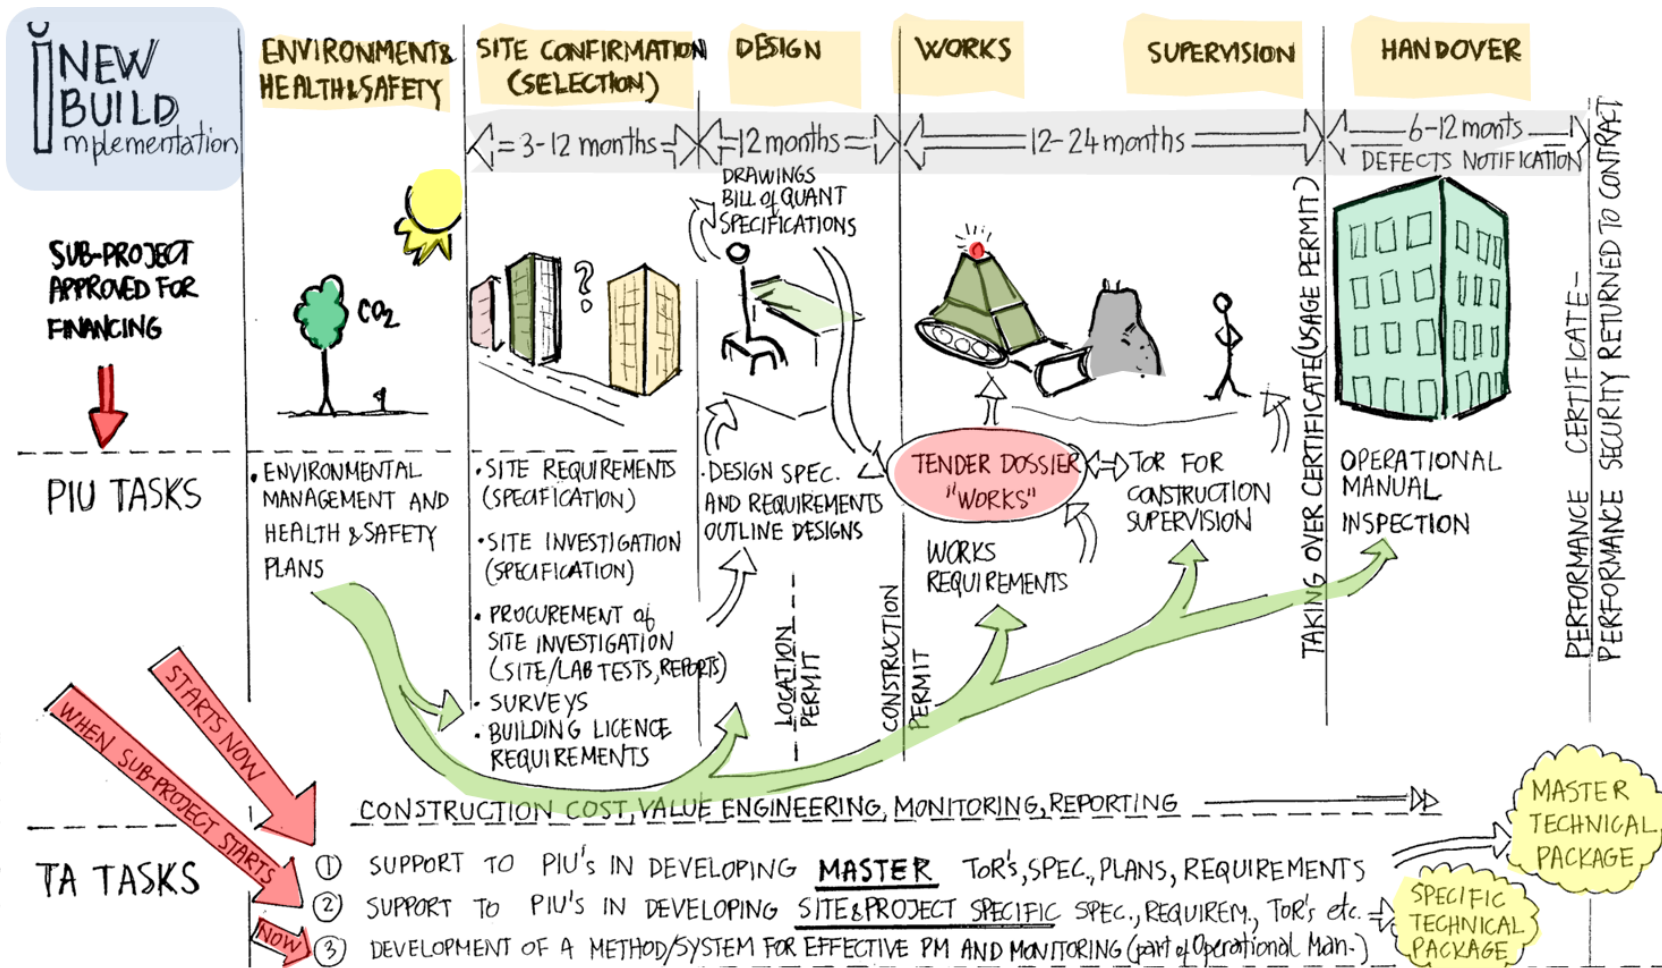 NEW
BUILD
implementation
ENVIRONMENT&
HEALTH&SAFETY
SITE CONFIRMATION
(SELECTION)
DESIGN
WORKS
SUPERVISION
HANDOVER
3-12 months
12 months
12-24 months
6-12 monts
DEFECTS NOTIFICATION
SUB-PROJECT
APPROVED FOR
FINANCING
CO2
?
DRAWINGS
BILL of QUANT
SPECIFICATIONS
TAKING OVER CERTIFICATE (USAGE PERMIT)
PERFORMANCE CERTIFICATE-
PERFORMANCE SECURITY RETURNED TO CONTRACT
PIU TASKS
• ENVIRONMENTAL
MANAGEMENT AND
HEALTH & SAFETY
PLANS
• SITE REQUIREMENTS
(SPECIFICATION)
• SITE INVESTIGATION
(SPECIFICATION)
• PROCUREMENT of
SITE INVESTIGATION
(SITE/LAB TESTS, REPORTS)
• SURVEYS
• BUILDING LICENCE
REQUIREMENTS
• DESIGN SPEC.
AND REQUIREMENTS
OUTLINE DESIGNS
LOCATION
PERMIT
CONSTRUCTION
PERMIT
TENDER DOSSIER
"WORKS"
WORKS
REQUIREMENTS
TOR FOR
CONSTRUCTION
SUPERVISION
OPERATIONAL
MANUAL
INSPECTION
STARTS NOW
WHEN SUB-PROJECT STARTS
NOW
CONSTRUCTION COST, VALUE ENGINEERING, MONITORING, REPORTING
TA TASKS
1 SUPPORT TO PIU's IN DEVELOPING MASTER TOR's, SPEC., PLANS, REQUIREMENTS
2 SUPPORT TO PIU's IN DEVELOPING SITE&PROJECT SPECIFIC SPEC., REQUIREM., TOR's etc.
3 DEVELOPMENT OF A METHOD/SYSTEM FOR EFFECTIVE PM AND MONITORING (part of Operational Man.)
MASTER
TECHNICAL
PACKAGE
SPECIFIC
TECHNICAL
PACKAGE